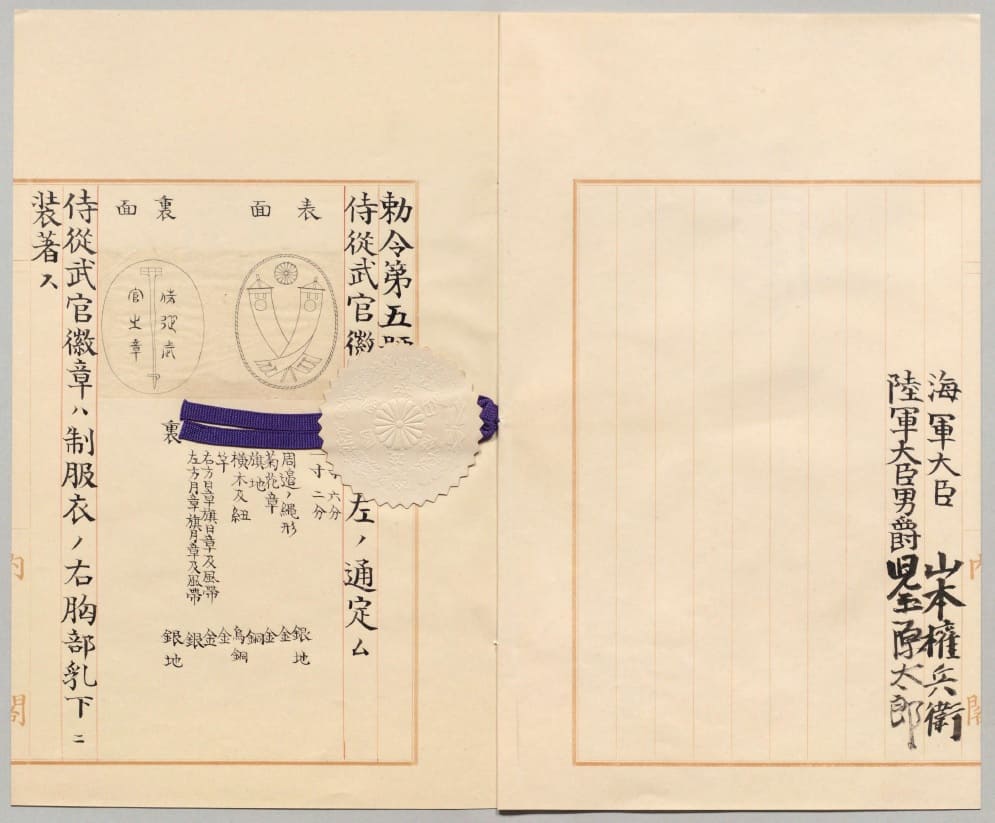 海軍大臣 山本權兵衛
陸軍大臣男爵 児玉源太郎
内閣
勅令第五
侍從武官徽 左ノ通定ム
表面
裏面
侍從武
官之章
寸六分
一寸二分
周邊ノ縄形 銀地
菊花章 金
旗地 金
横木及紐 銅
竿 烏銅
右方日章旗日章及風帶 金
左方月章旗月章及風帶 銀
裏 銀地
侍從武官徽章ハ制服衣ノ右胸部乳下ニ
装著ス
内閣